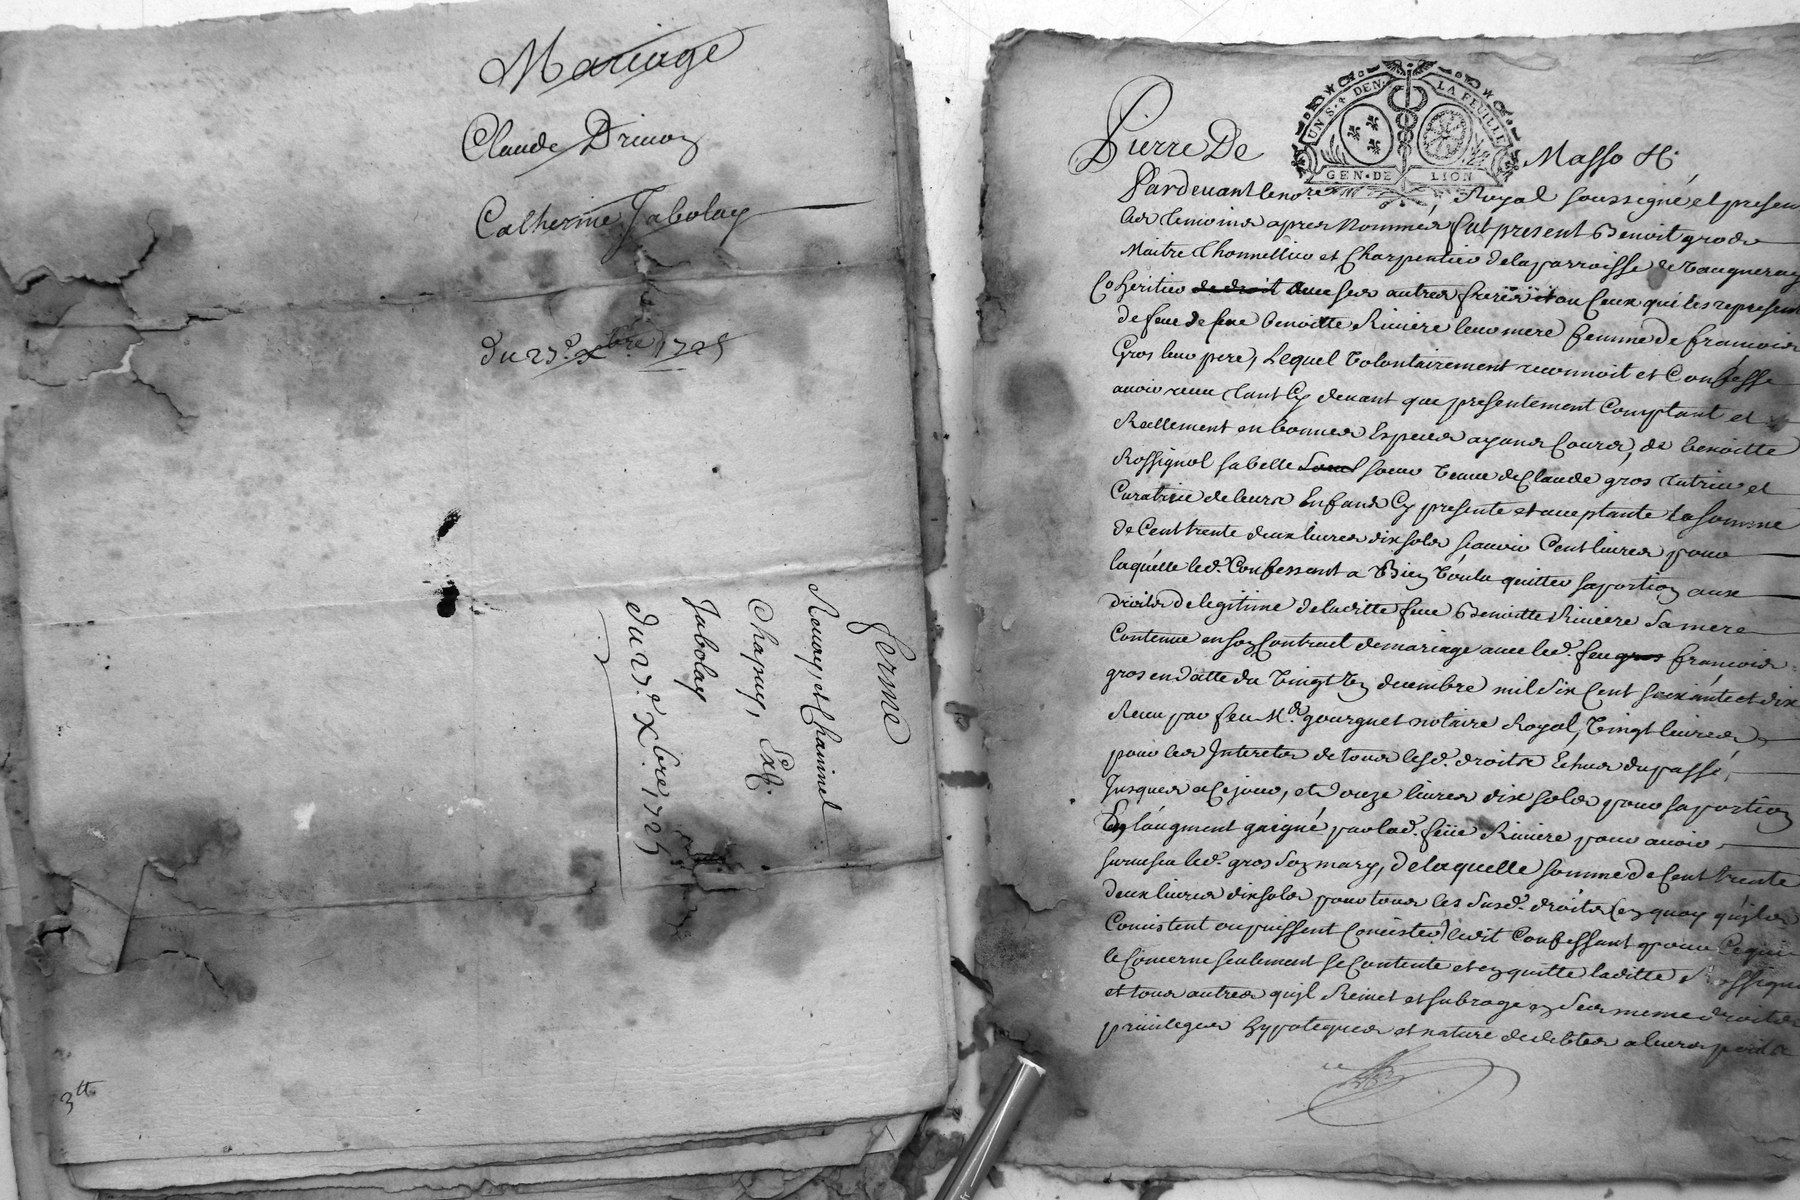 Mariage
Claude Drivon
Catherine Jabolay
du 27.e xbre 1725
ferme
Revoy, et Chaninel
Chapuy, Ex.
Jabolay
du 27.e xbre 1725
3tt
UN S. 4 DEN. LA FEUILLE
GEN. DE LION
Pierre De Masso
Pardevant le no.re Royal soussigné et presen
les temoins apres Nommés fut present Benoit gros
Maitre Thonnellier et Charpentier de la parroisse de Vaugneray
Coheritier de droit avec ses autres freres et ou ceux qui les represent
de feue de feue benoitte Riviere leur mere femme de francois
Gros leur pere, Lequel Volontairement reconnoit et Confesse
avoir receu tant Cy devant que presentement Comptant et
Reellement en bonnes Especes ayans Cours, de benoitte
Rossignol sa belle soeur Veuve de Claude gros tutrice et
Curatrice de leurs Enfans Cy presente et acceptante la somme
de Cent trente deux livres dix sols scavoir Cent livres pour
laquelle led. Confessant a Bien Voulu quitter sa portion aux
droits de legitime de laditte feue Benoitte Riviere sa mere
Contenue en son Contract de mariage avec led. feu gros francois
gros en datte du Vingt decembre mil six Cent soixante et dix
Receu par feu M.e gourgnet notaire Royal, Vingt livres
pour les Interets de tous lesd. droits Echus du passé,
Jusques a Ce jour, et douze livres dix sols pour sa portion
En laugment gaigné par lad. feüe Riviere pour avoir
survescu led. gros son mary, de laquelle somme de Cent trente
deux livres dix sols pour tous les susd. droits en quoy qu'ils
Consistent ou puissent Consister ledit Confessant pour Ce qui
le Concerne seulement se Contente et en quitte laditte Rossigno
et tous autres qu'il Remet et subroge en ses meme droits
privileges hypoteques et nature de debtes a leurs perils